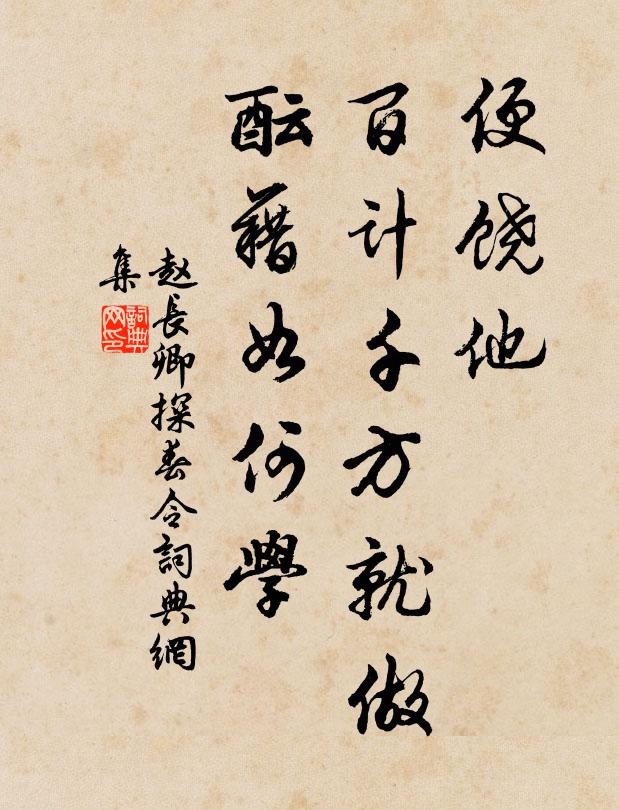 便饶他
百计千方就做
酝藉如何學
赵長卿探春令詞典網
集
詞典
网印